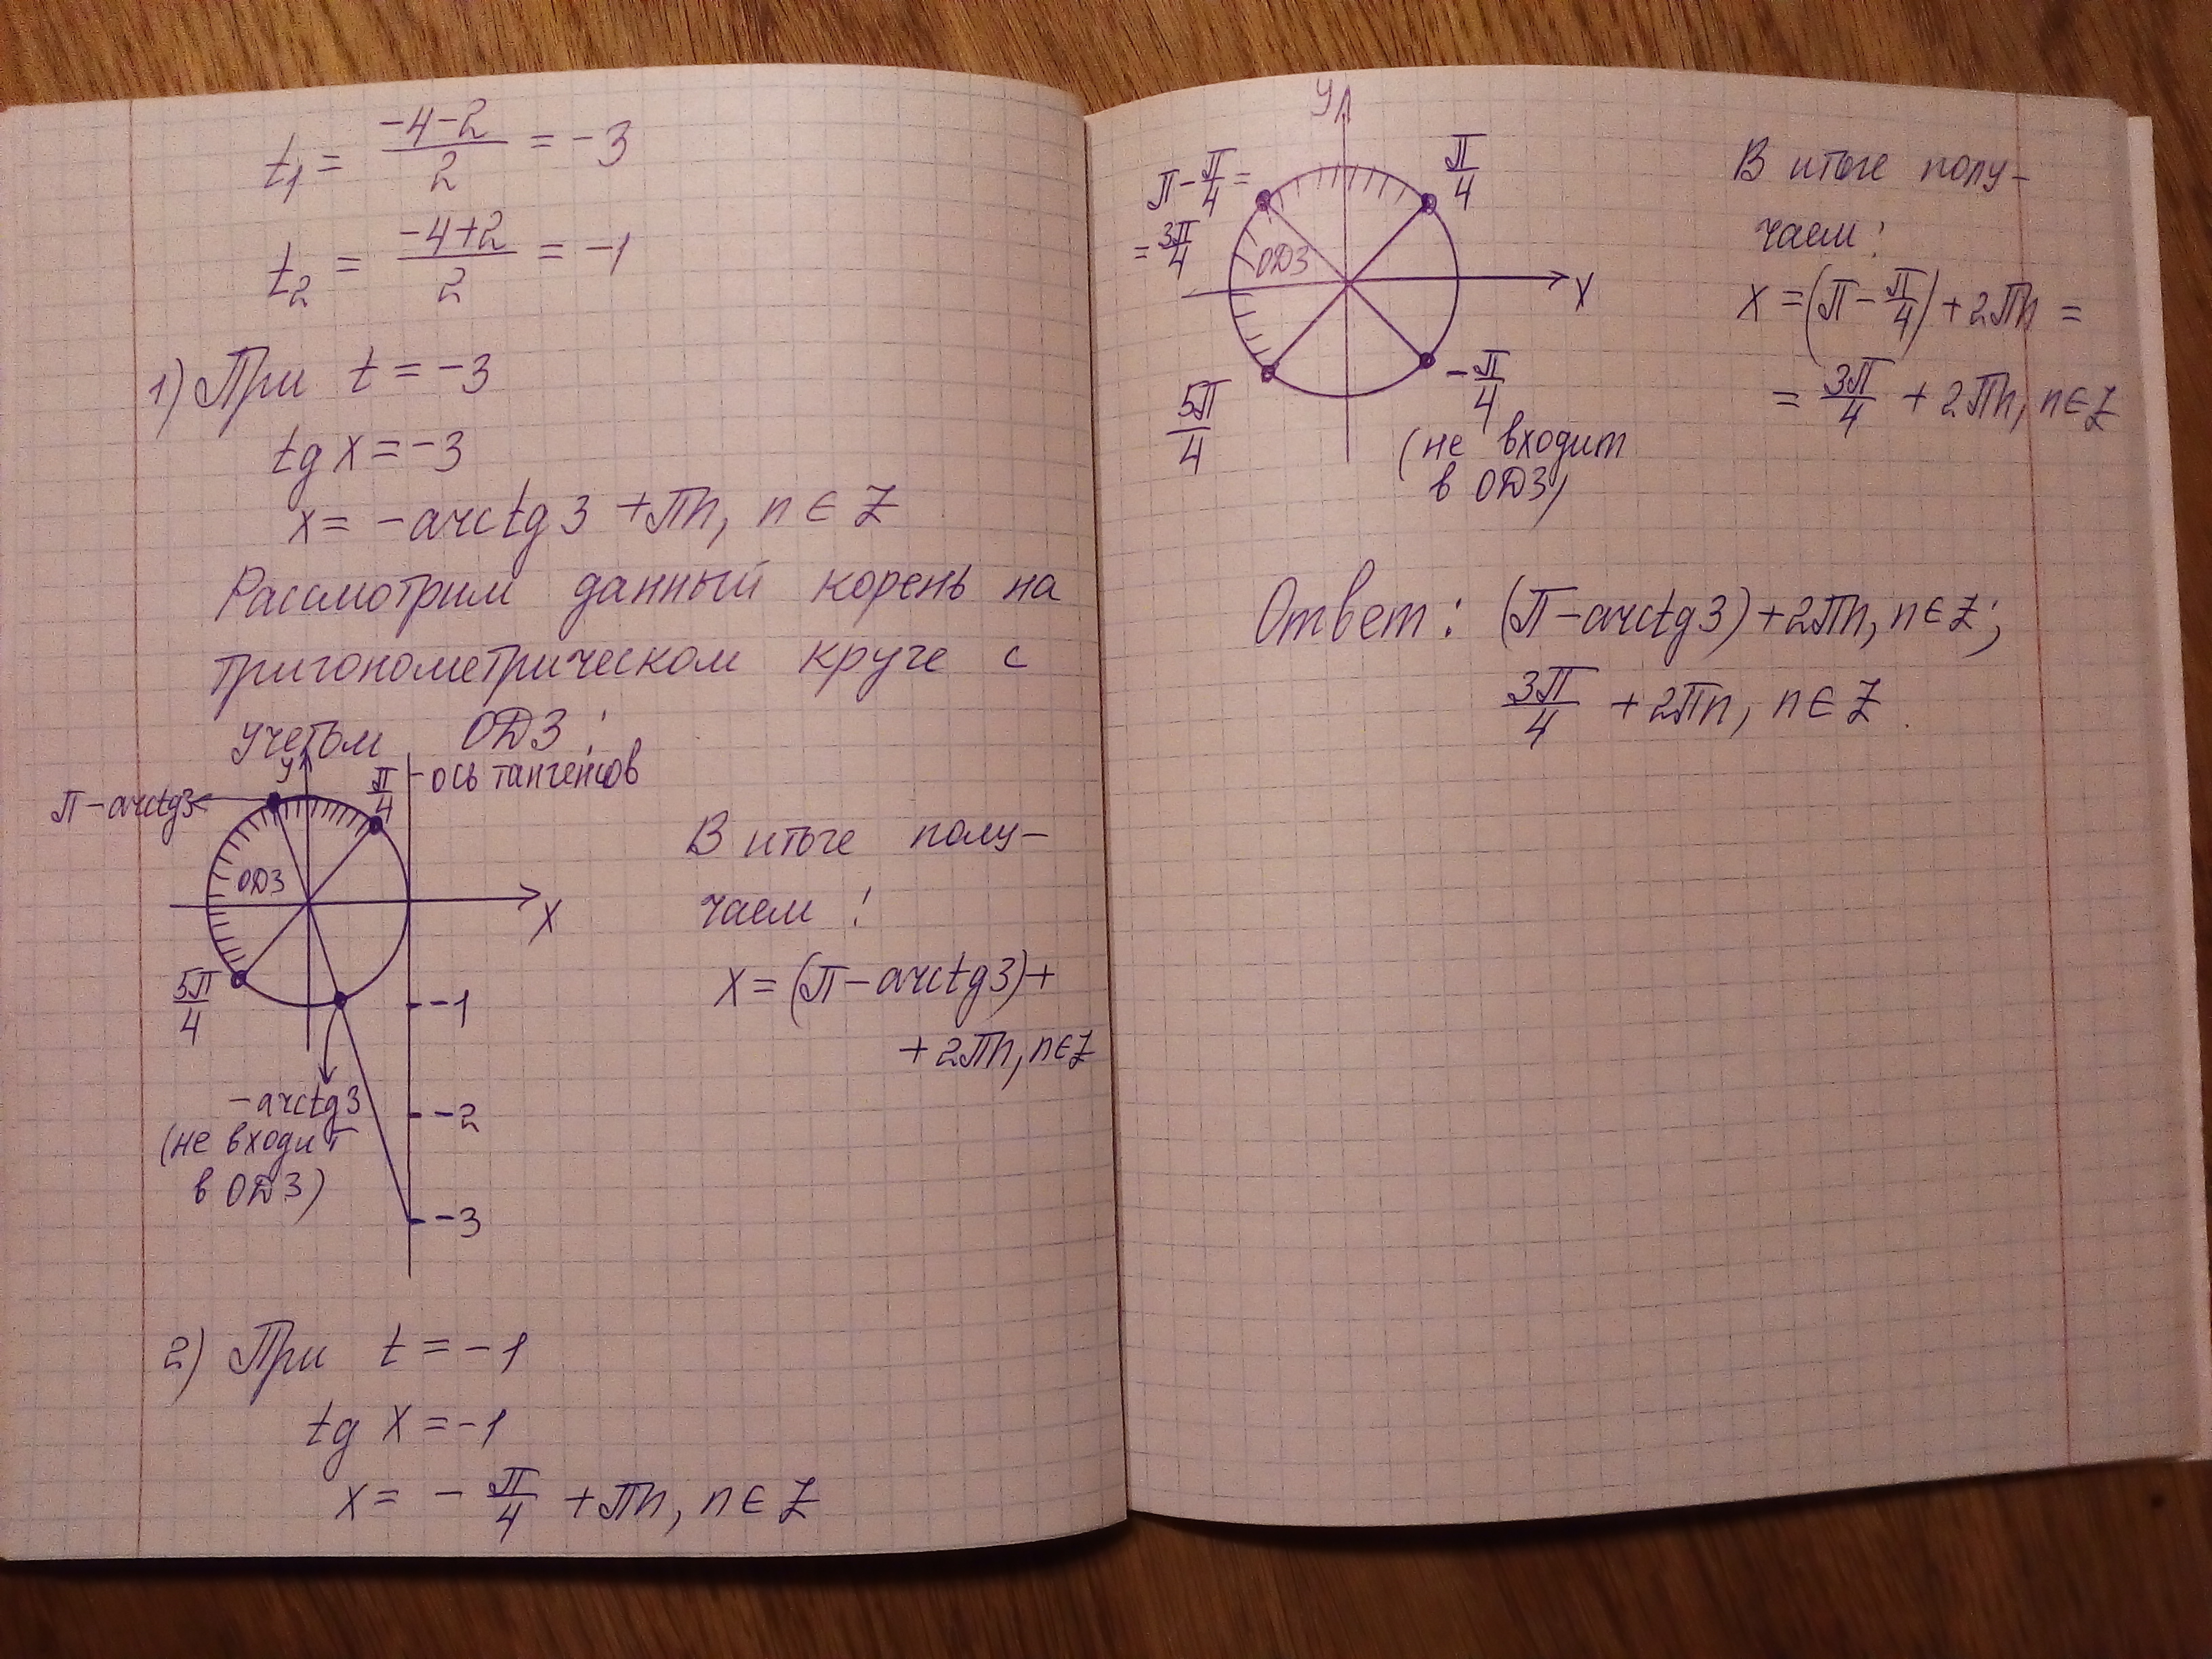 t₁ = (-4-2)/2 = -3
t₂ = (-4+2)/2 = -1
1) При t = -3
tg x = -3
x = -arctg3 + πn, n ∈ Z
Рассмотрим данный корень на
тригонометрическом круге с
учетом ОДЗ:
y
π/4
ось тангенсов
π - arctg3
ОДЗ
x
5π/4
-1
-arctg3
(не входит
в ОДЗ)
-2
-3
В итоге полу-
чаем:
x = (π - arctg3) +
+ 2πn, n ∈ Z
2) При t = -1
tg x = -1
x = - π/4 + πn, n ∈ Z
y
π - π/4 =
= 3π/4
π/4
ОДЗ
x
5π/4
- π/4
(не входит
в ОДЗ)
В итоге полу-
чаем:
x = (π - π/4) + 2πn =
= 3π/4 + 2πn, n ∈ Z
Ответ: (π - arctg3) + 2πn, n ∈ Z;
3π/4 + 2πn, n ∈ Z.